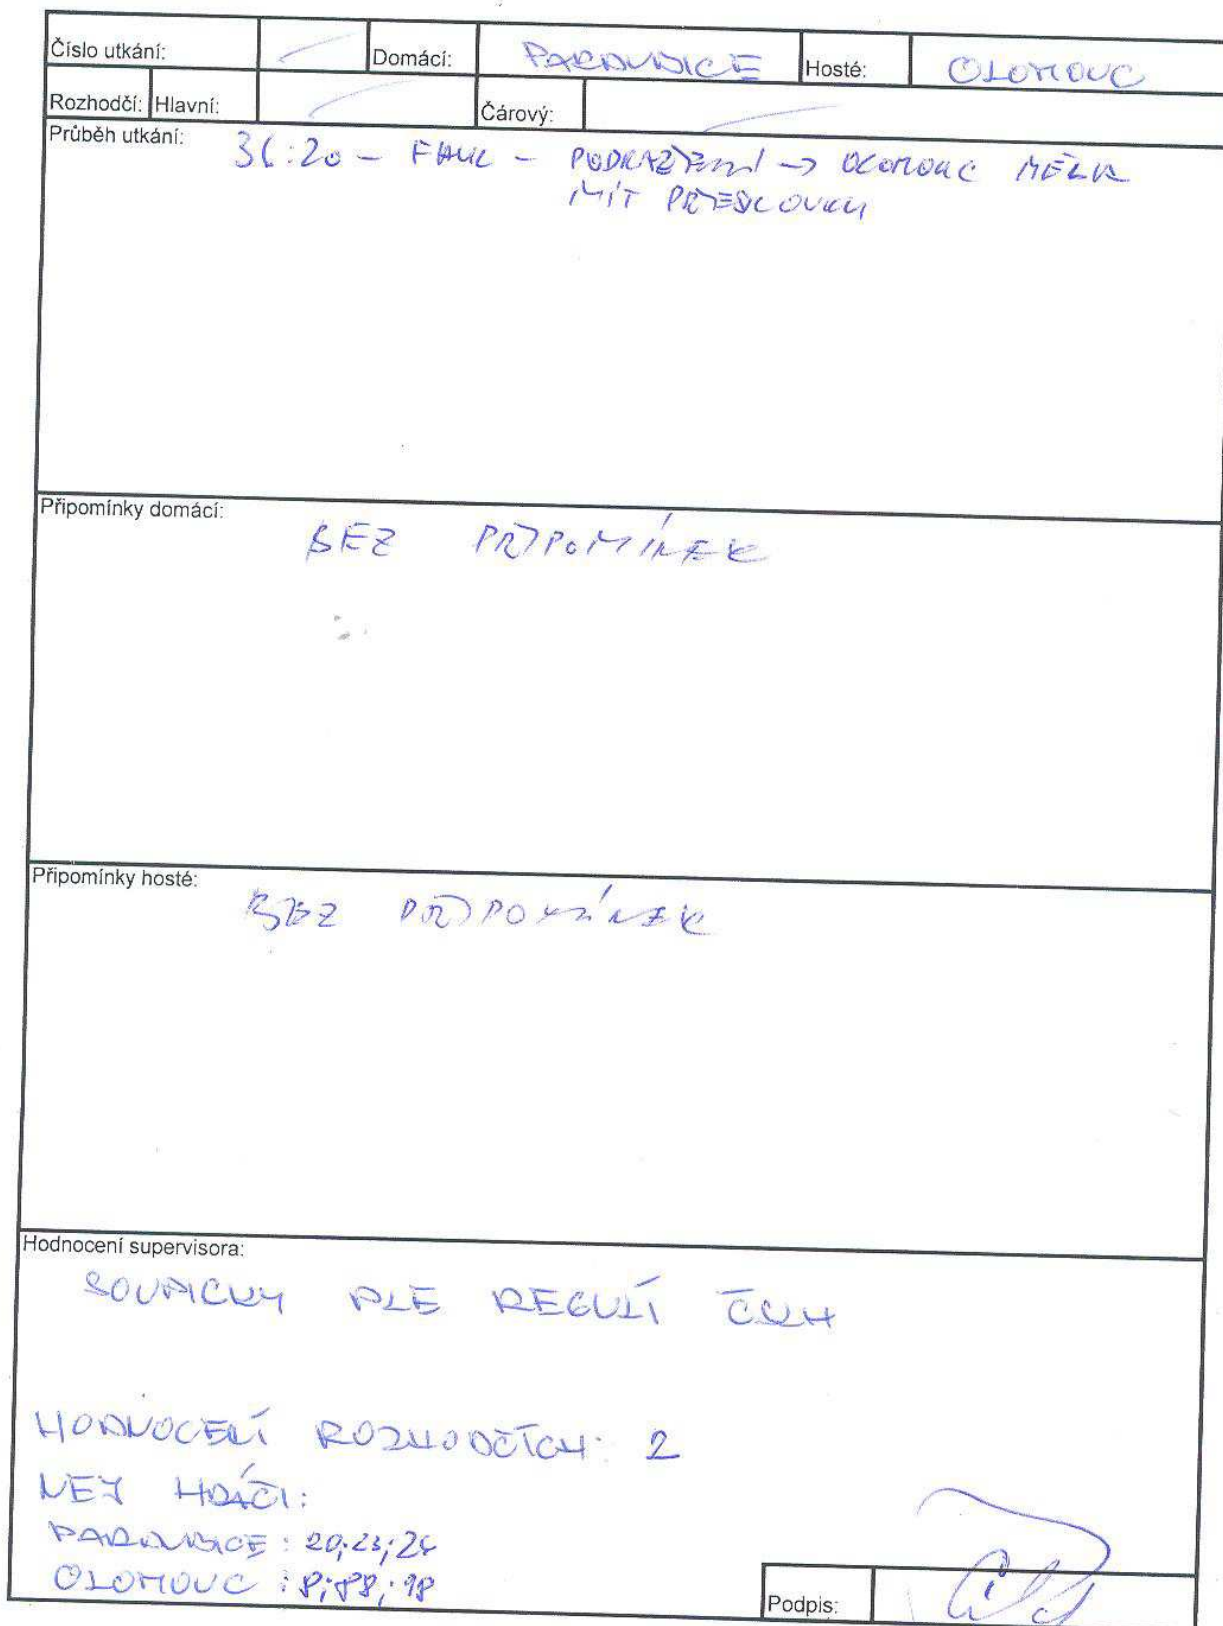 Číslo utkání: Domácí: PARDUBICE Hosté: OLOMOUC
Rozhodčí: Hlavní: Čárový:
Průběh utkání:
36:20 – FAUL – PODRAŽENÍ → OLOMOUC MĚLA
MÍT PŘESILOVKU
Připomínky domácí:
BEZ PŘIPOMÍNEK
Připomínky hosté:
BEZ PŘIPOMÍNEK
Hodnocení supervisora:
SOUPISKY DLE REGULÍ
HODNOCENÍ ROZHODČÍCH: 2
NEJ HRÁČI:
PARDUBICE: 20; 23;
OLOMOUC: 8; 88; 98
Podpis: